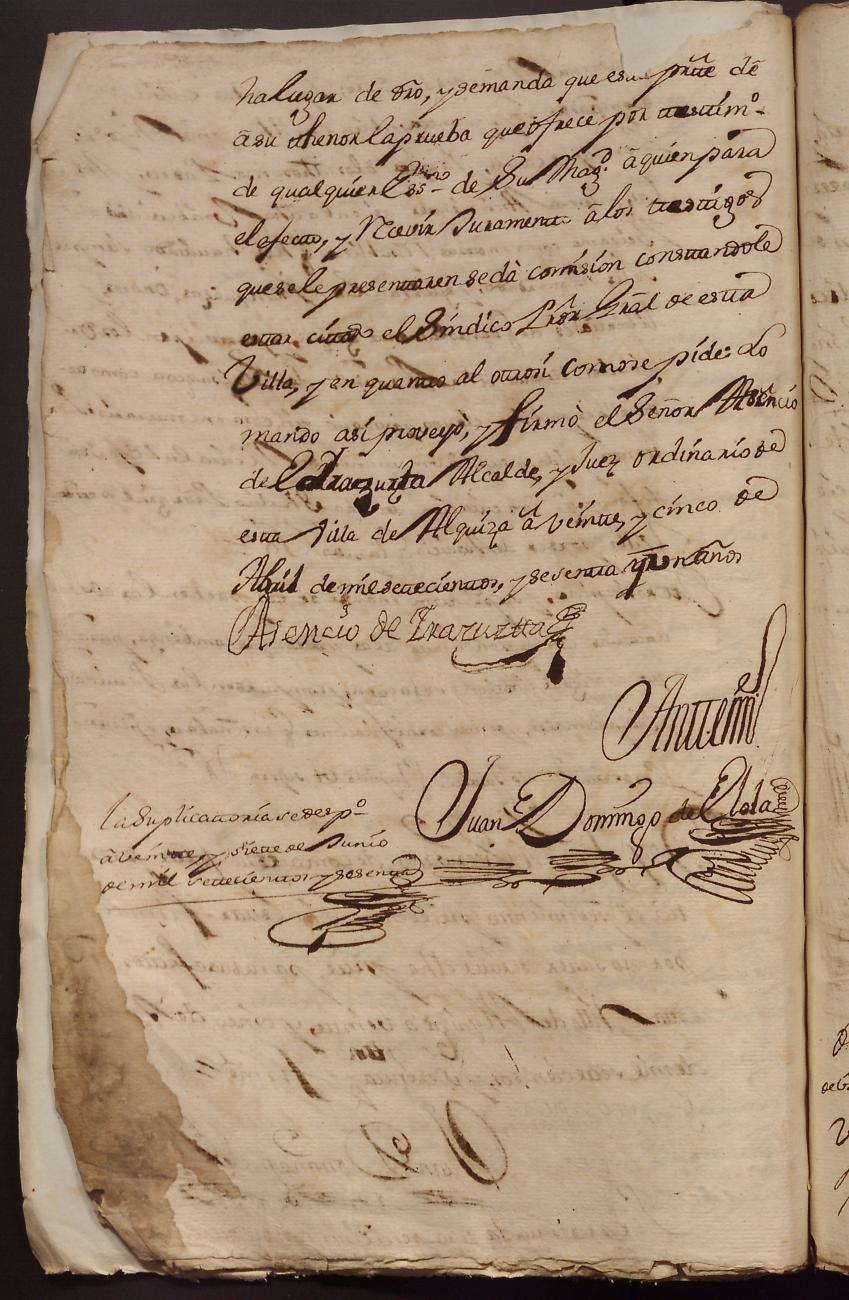 ha lugar de dro, y demanda que esta partte dè
â su thenor la prueba que ofrece por ttesttimo.
de qualquier Essno. de Su Magd. â quien para
el efecto, y Recivir Juramentto â los ttesttigos
que se le presenttaren se dà comision consttandole
esttar cittado el Síndico Pror. Gral de estta
Villa, y en quantto al ottrosí como se pide: Lo
mando así proveyò, y firmò el Señor Asencio
de Yrazuzta Alcalde, y Juez ordinario de
estta Villa de Alquiza â veintte, y cinco de
Abril de mil settecienttos, y sesentta y un años
Asencio de Yrazuztta
Antte mi
Juan Domingo de Elola
La Suplicattoria se despo.
â veintte, y siette de Junio
de mil settecienttos y sesentta